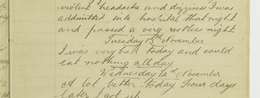 violent headache and dizziness I was
admitted into hospital that night
and passed a very restless night
Tuesday November
I was very bad today and could
eat nothing all day
Wednesday November
A lot better today four days
later I got up